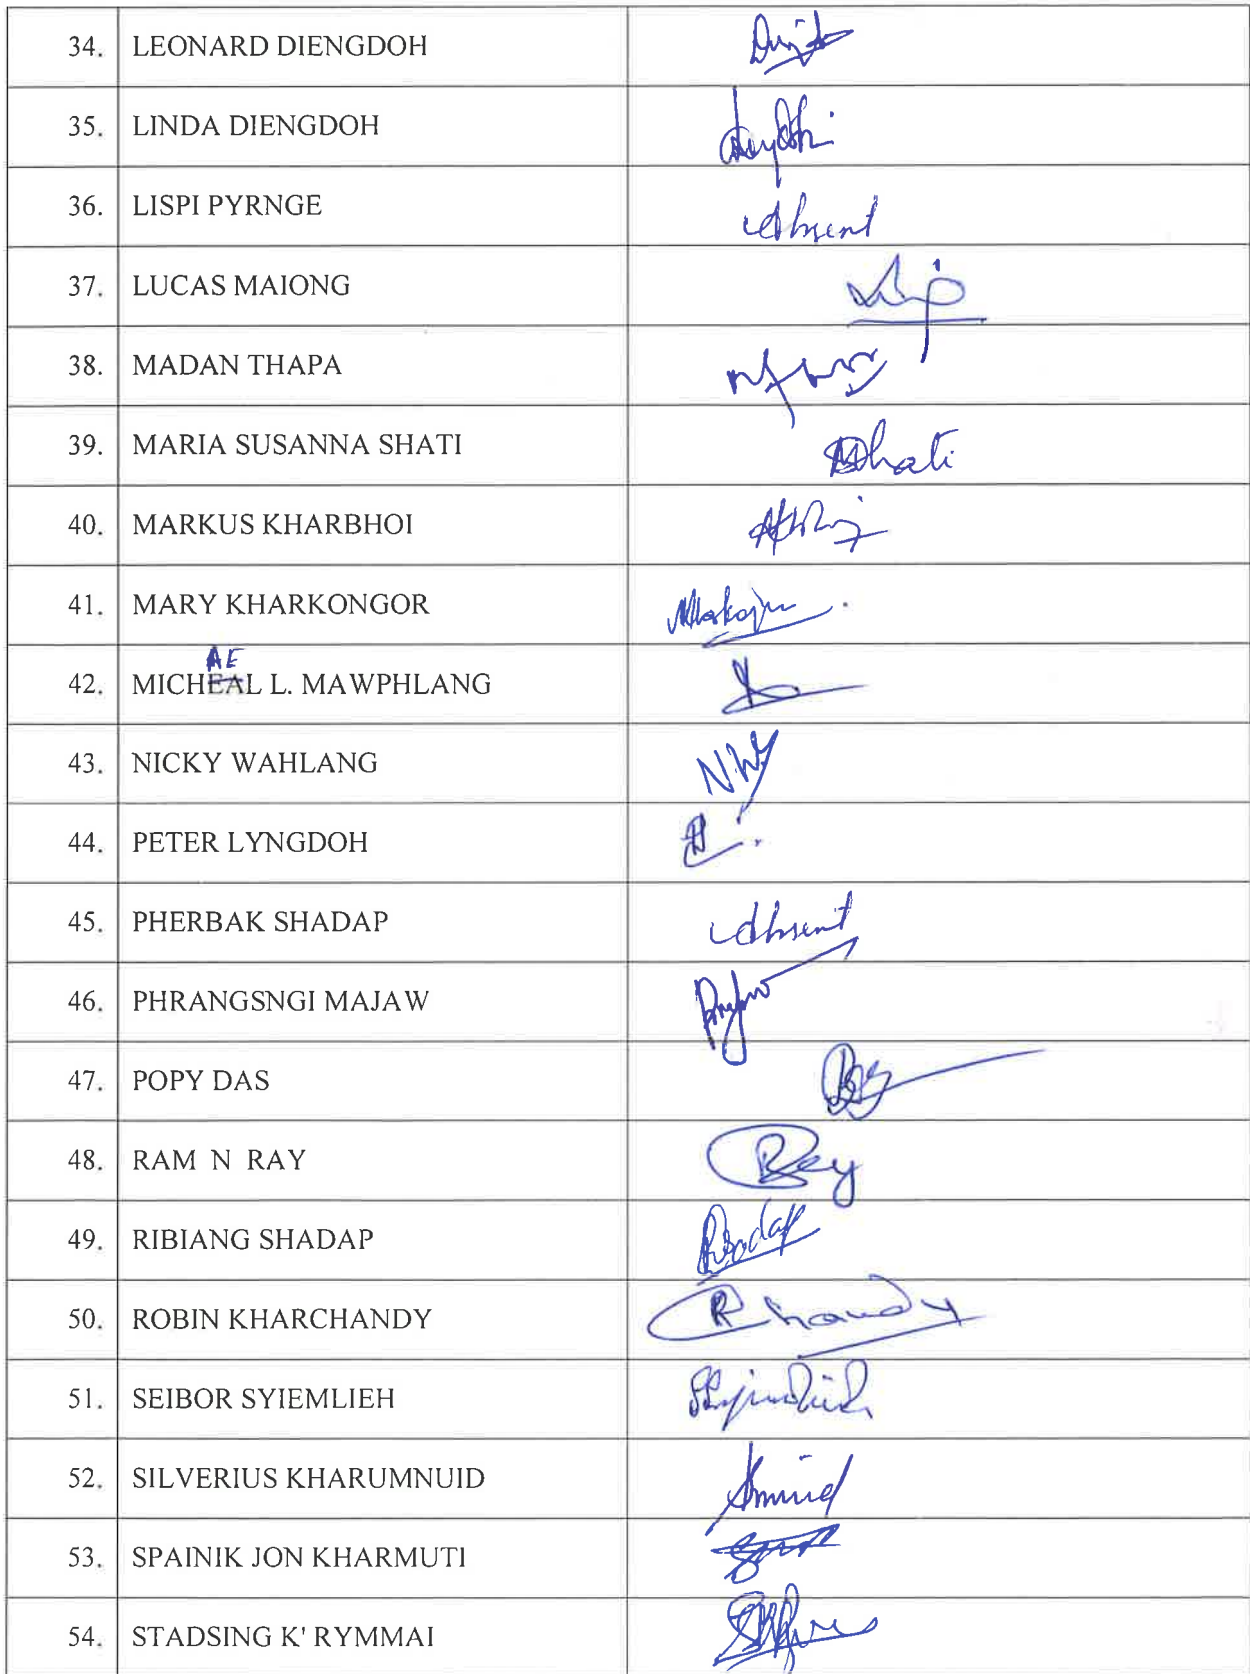 34. LEONARD DIENGDOH
35. LINDA DIENGDOH
36. LISPI PYRNGE Absent
37. LUCAS MAIONG
38. MADAN THAPA
39. MARIA SUSANNA SHATI Shati
40. MARKUS KHARBHOI
41. MARY KHARKONGOR
AE
42. MICHEAL L. MAWPHLANG
43. NICKY WAHLANG
44. PETER LYNGDOH
45. PHERBAK SHADAP Absent
46. PHRANGSNGI MAJAW
47. POPY DAS
48. RAM N RAY Ray
49. RIBIANG SHADAP
50. ROBIN KHARCHANDY
51. SEIBOR SYIEMLIEH
52. SILVERIUS KHARUMNUID
53. SPAINIK JON KHARMUTI
54. STADSING K' RYMMAI